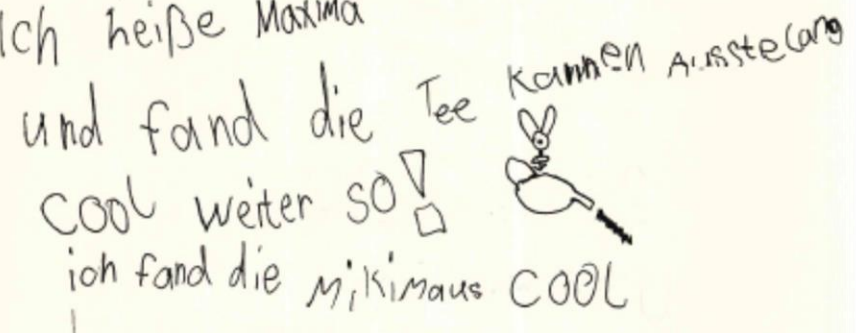 Ich heiße Maxima
und fand die Tee Kannen Ausstelang
COOL weiter so!
ich fand die Mikimaus COOL